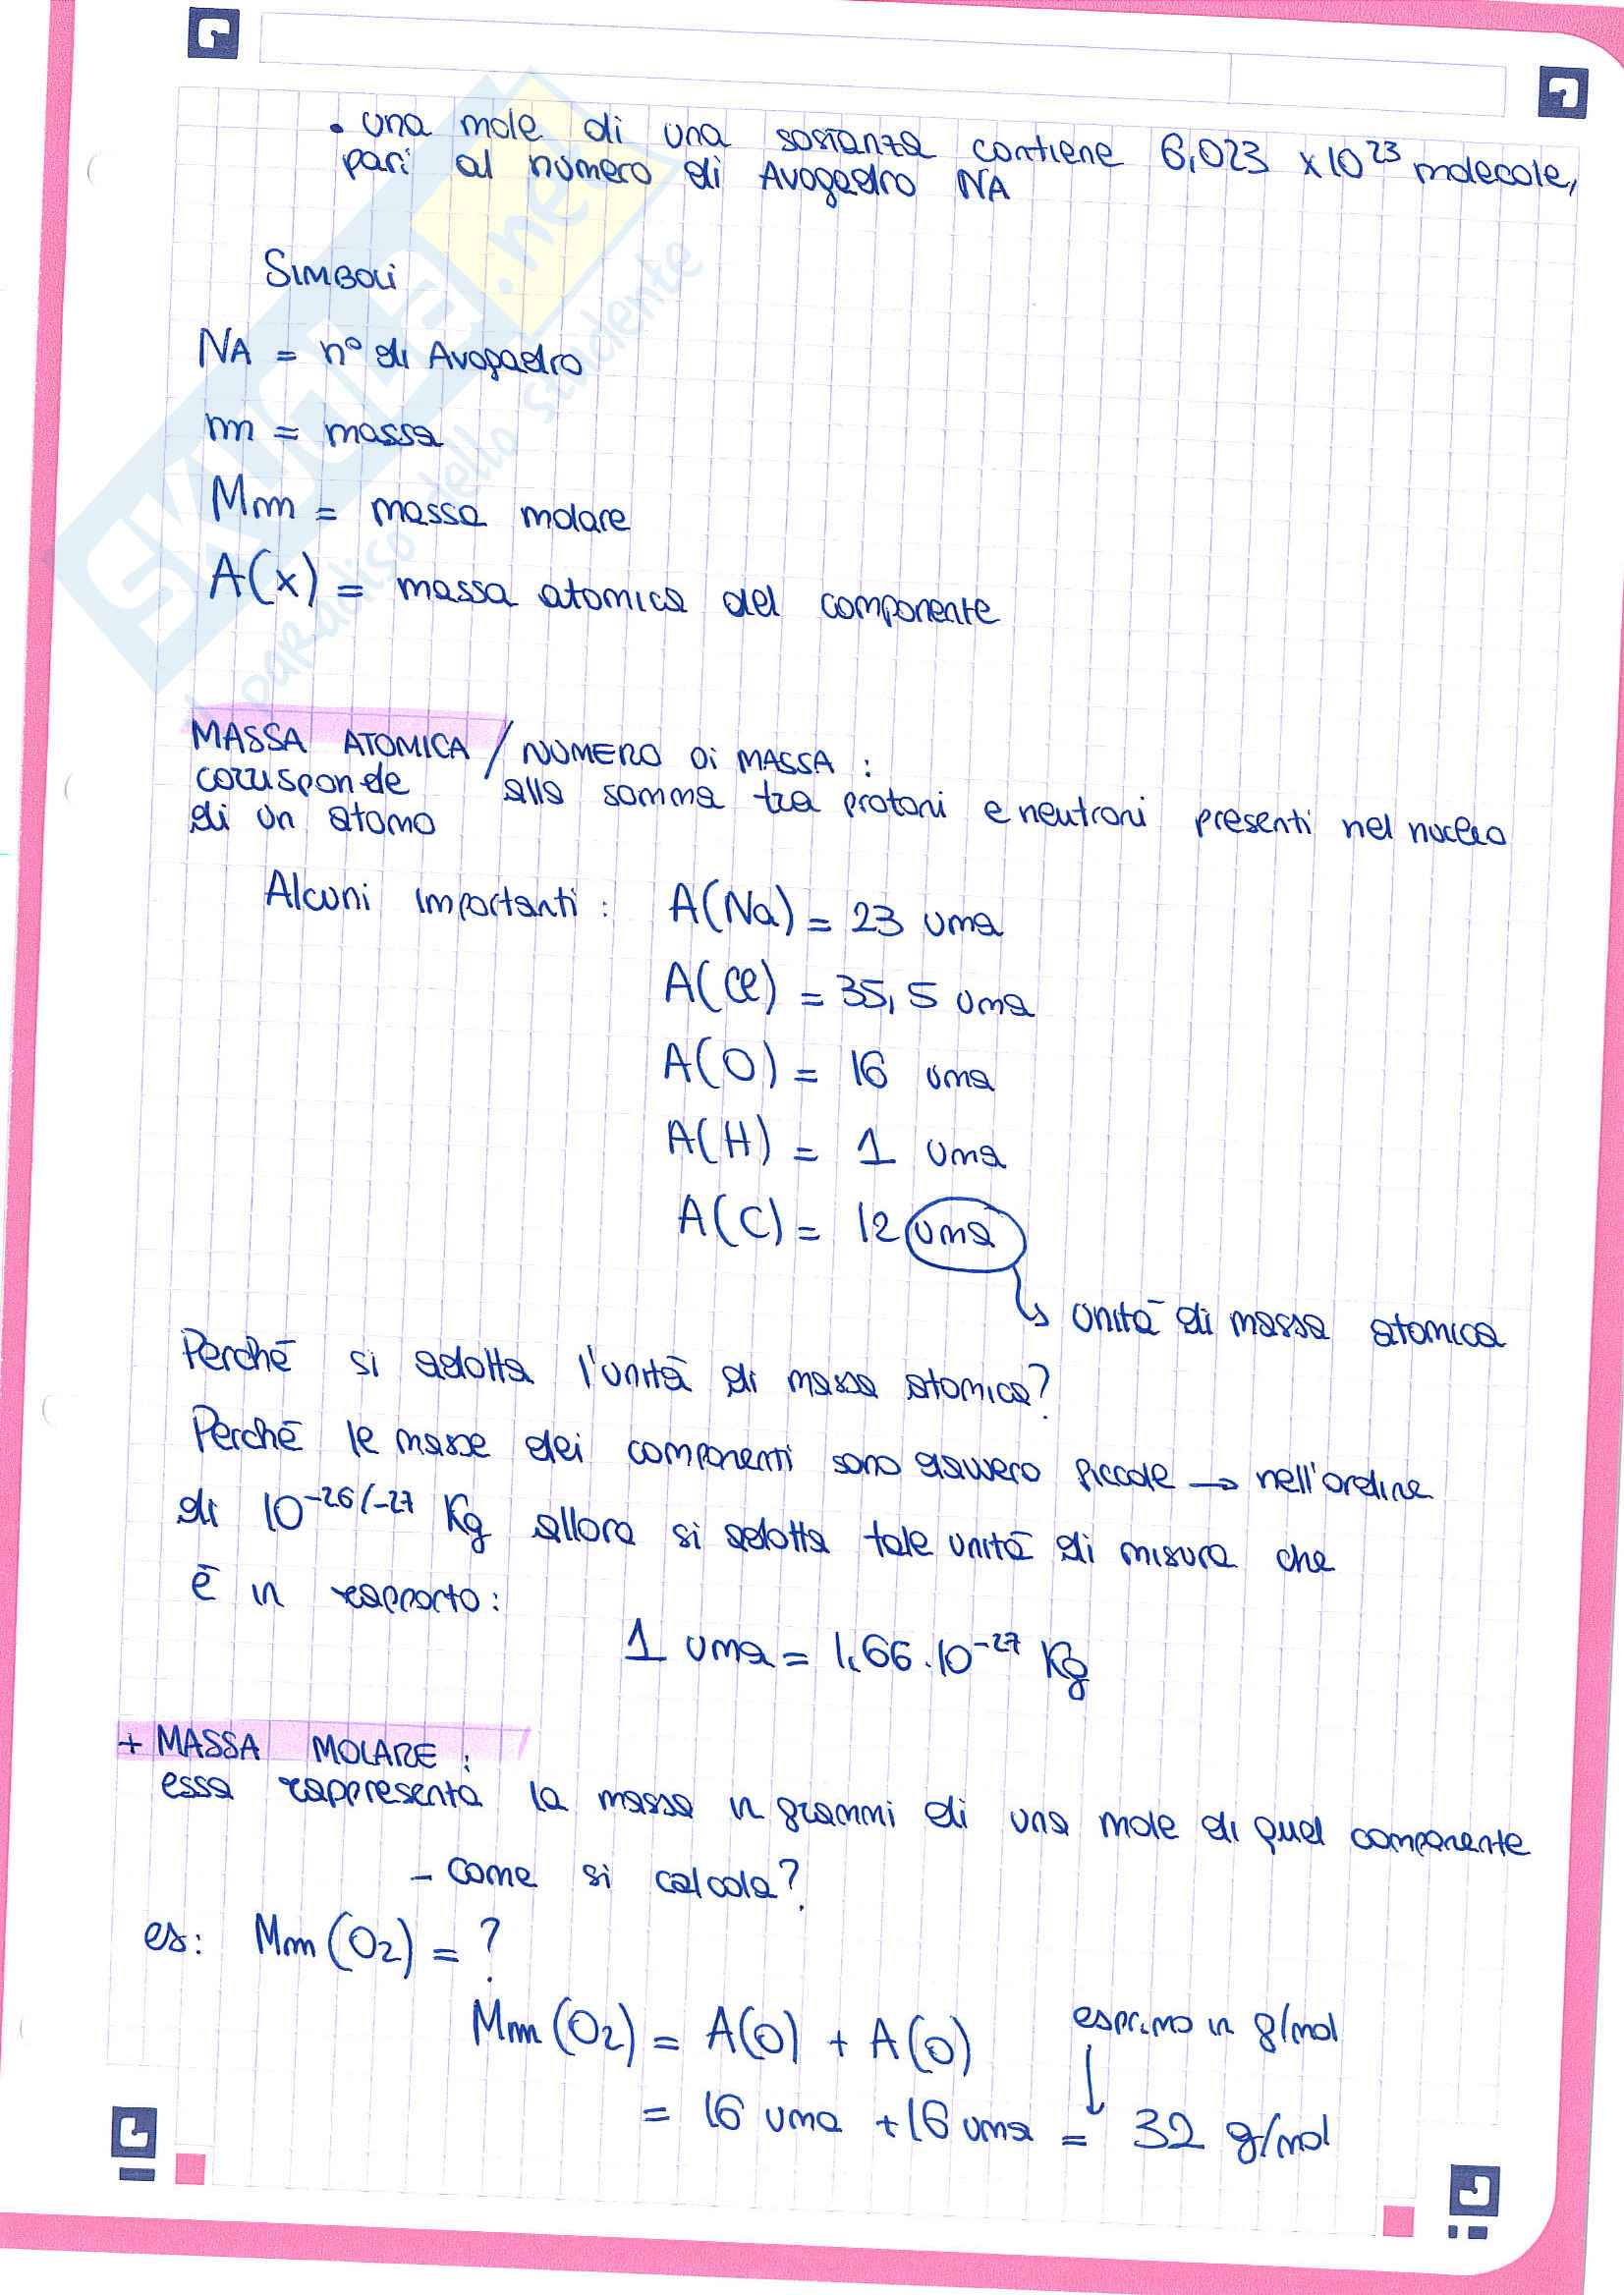 • una mole di una sostanza contiene 6,023 x 10²³ molecole,
pari al numero di Avogadro NA
SIMBOLI
NA = n° di Avogadro
m = massa
Mm = massa molare
A(x) = massa atomica del componente
MASSA ATOMICA / NUMERO DI MASSA :
corrisponde alla somma tra protoni e neutroni presenti nel nucleo
di un atomo
Alcuni importanti : A(Na) = 23 uma
A(Cl) = 35,5 uma
A(O) = 16 uma
A(H) = 1 uma
A(C) = 12 uma
↳ unità di massa atomica
Perché si adotta l'unità di massa atomica?
Perché le masse dei componenti sono davvero piccole → nell'ordine
di 10⁻²⁶/⁻²⁷ Kg allora si adotta tale unità di misura che
è in rapporto:
1 uma = 1,66 · 10⁻²⁷ Kg
+ MASSA MOLARE :
essa rappresenta la massa in grammi di una mole di quel componente
- Come si calcola?
es: Mm (O₂) = ?
Mm (O₂) = A(O) + A(O) esprimo in g/mol
↓
= 16 uma + 16 uma = 32 g/mol
SKUOLA.net
il paradiso dello studente